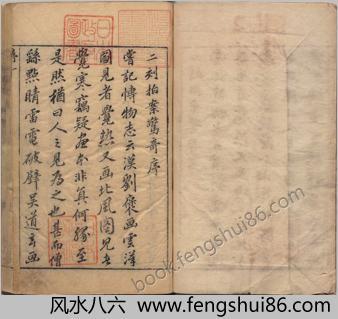 二刻拍案驚奇序
嘗記博物志云漢劉褒画雲漢
圖見者覺熱又画北風圖見者
覺寒竊疑画本非真何緣至
是然猶曰人之見為之也甚而僧
繇點睛雷電破壁吳道玄画
序
book.fengshui86.com
风水八六 www.fengshui86.com